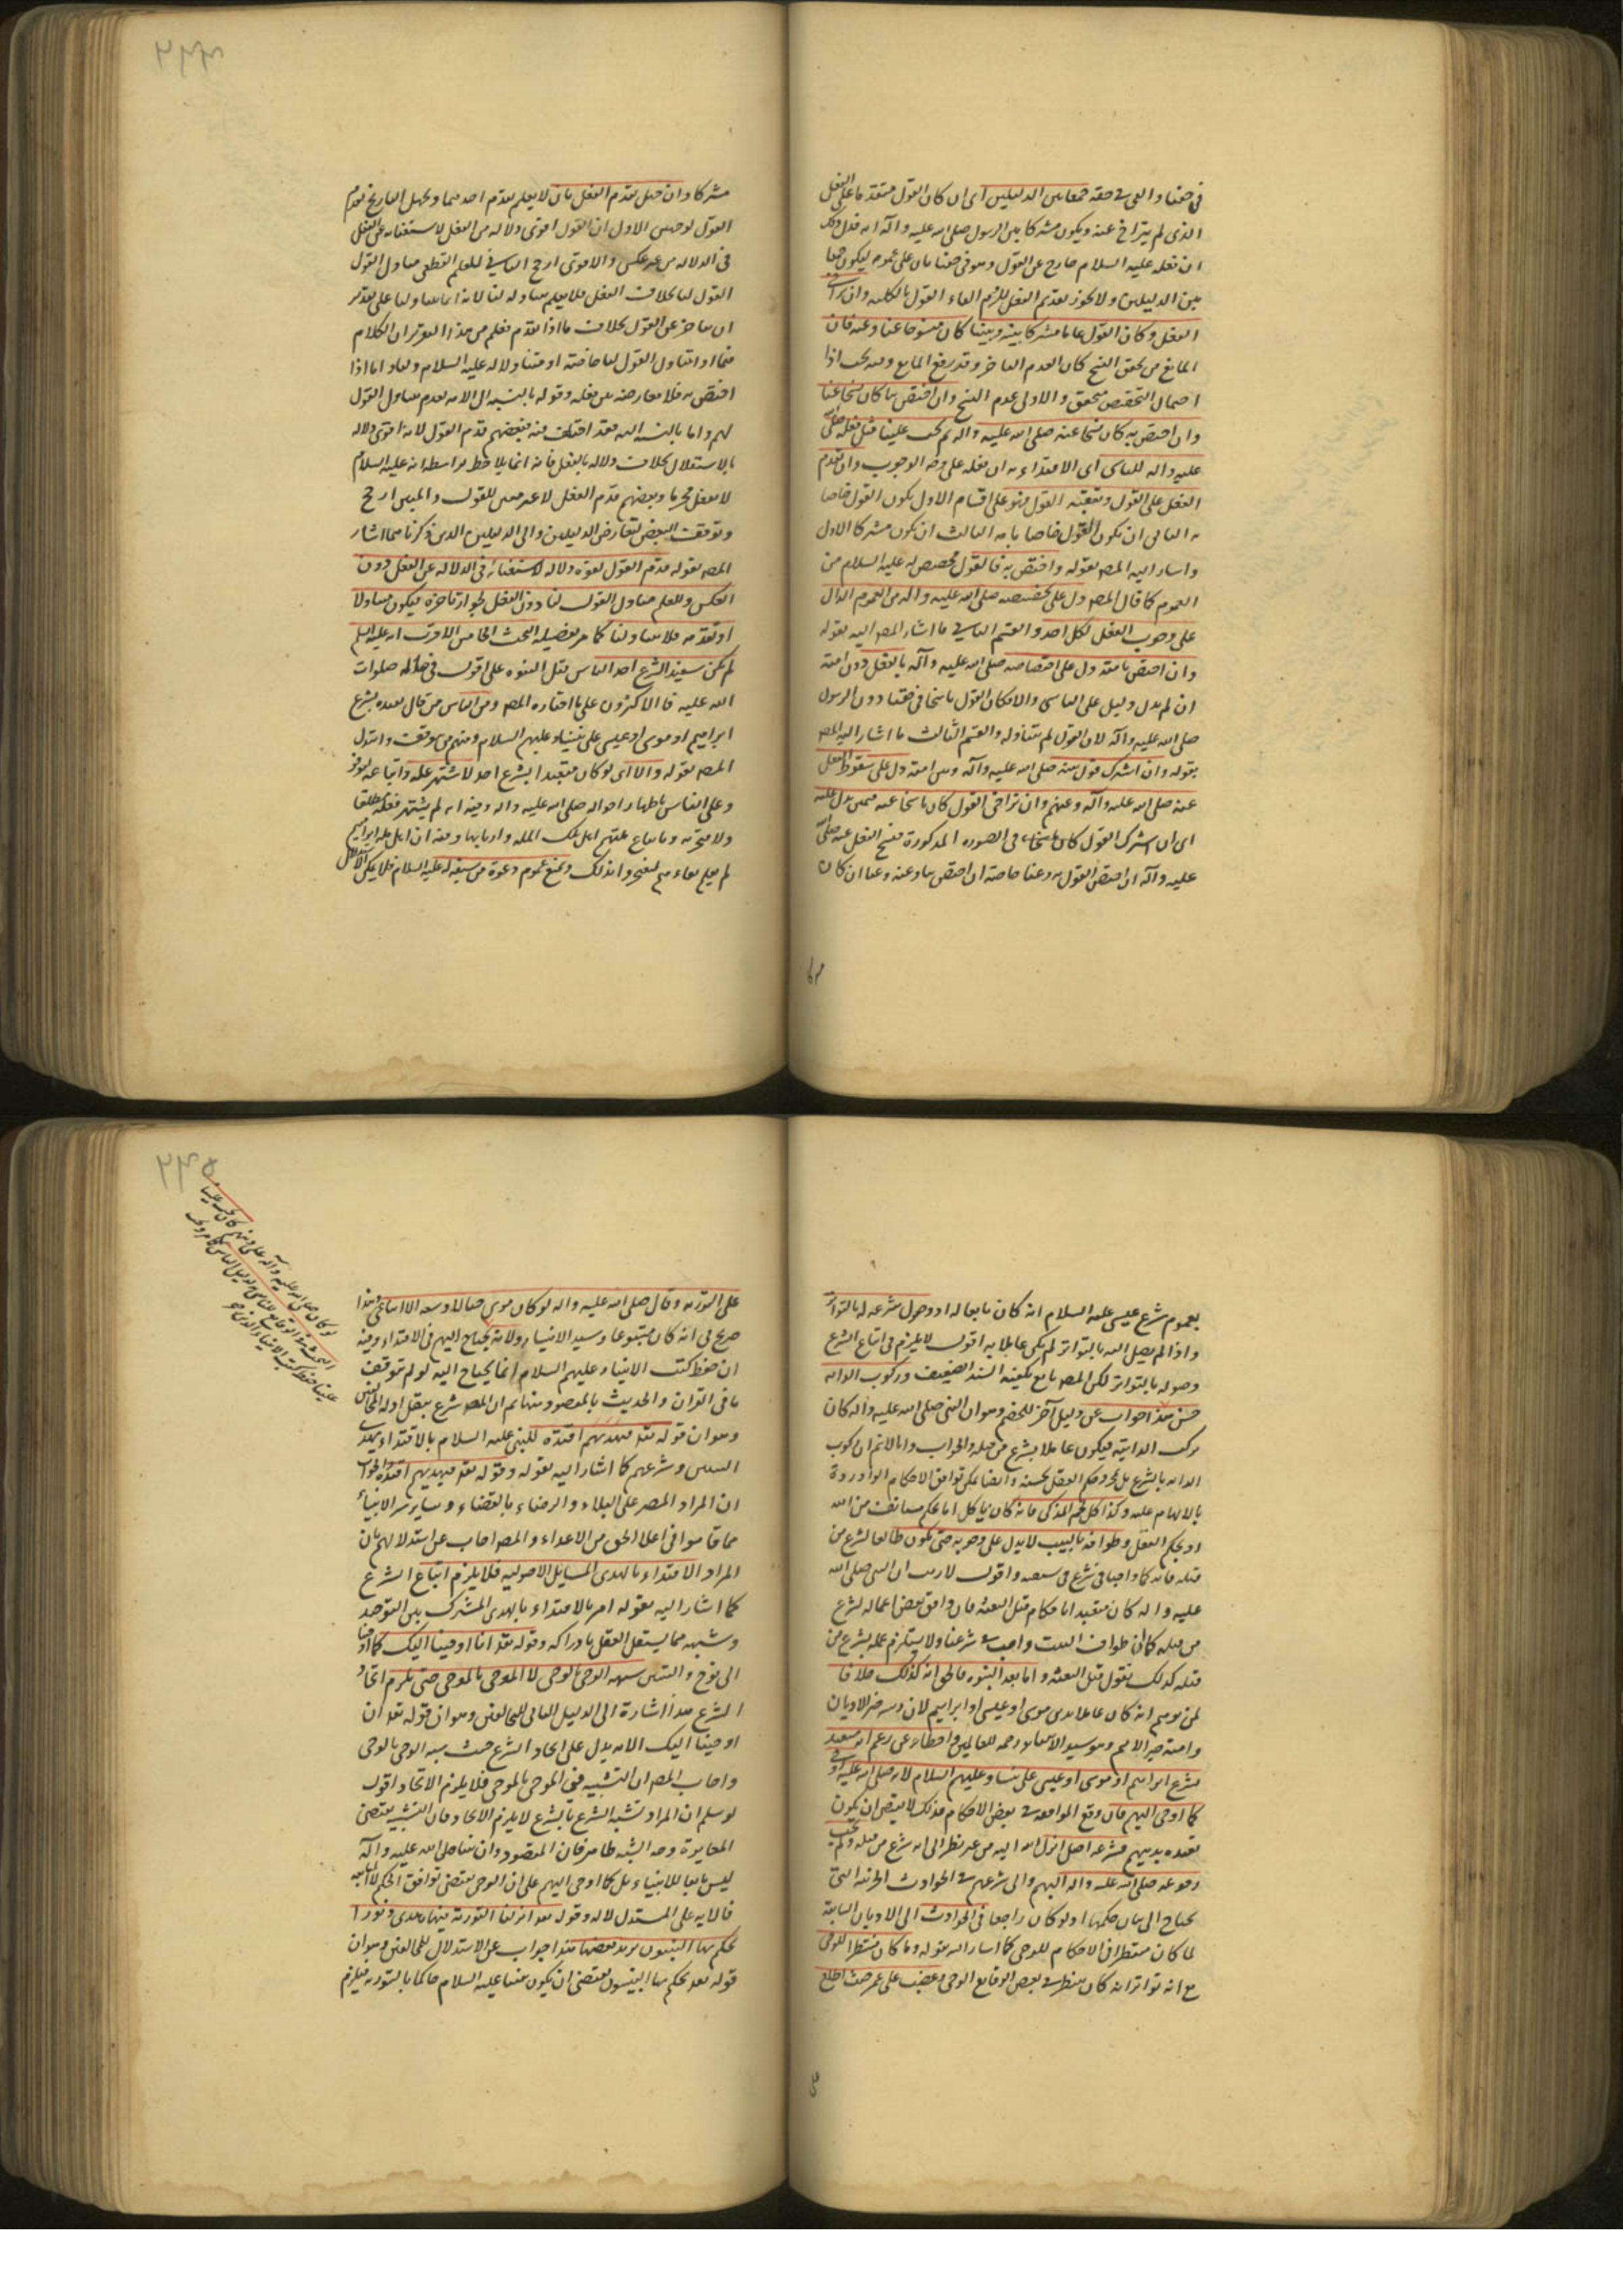 في حقنا والعمل في حقه جمعا بين الدليلين اى ان كان القول متقدما على الفعل
الذى لم يتراخ عنه ويكون مشتركا بين الرسول صلى الله عليه وآله
ان فعله عليه السلام خارج عن القول وهو في حقنا باق على عمومه ليكون جمعا
بين الدليلين ولا يجوز تقديم الفعل للزوم الغاء القول بالكليه وان تراخى
الفعل وكان القول عاما مشتركا بينه وبيننا كان منسوخا عنا وعنه فان
المانع من تحقق النسخ كان العدم التاخر وقد رفع المانع وفيه بحث اذا
احتمال التخصيص متحقق والاولى عدم النسخ وان اختص بنا كان نسخا عنا
وان اختص به كان نسخا عنه صلى الله عليه واله ثم يجب علينا مثل فعله صلى الله
عليه واله للتاسى اى الاقتداء به ان فعله على وجه الوجوب وان تقدم
الفعل على القول وتعقبه القول فهو على اقسام الاول يكون القول خاصا
به الثانى ان يكون القول خاصا بامته الثالث ان يكون مشتركا الاول
واشار اليه المص بقوله واختص به فالقول مخصص له عليه السلام من
العموم كما قال المص دل على تخصيصه صلى الله عليه واله من العموم الدال
على وجوب الفعل لكل احد والقسم الثانى ما اشار المص اليه بقوله
وان اختص بامته دل على اختصاصه صلى الله عليه وآله بالفعل دون امته
ان لم يدل دليل على التاسى والا فكان القول ناسخا في حقنا دون الرسول
صلى الله عليه وآله لان القول لم يتناوله والقسم الثالث ما اشار اليه المص
بقوله وان اشترك قول بينه صلى الله عليه وآله وبين امته دل على سقوط الفعل
عنه صلى الله عليه وآله وعنهم وان تراخى القول كان ناسخا عنه
اى ان اشترك القول كان ناسخا في الصورة المذكورة فنسخ الفعل عنه صلى الله
عليه وآله ان اختص القول به وعنا خاصة ان اختص بنا وعنه وعنا ان كان
مشتركا وان جهل تقدم الفعل بان لا يعلم تقدم احدهما وجهل التاريخ تقدم
القول لوجهين الاول ان القول اقوى دلالة من الفعل لاستغنائه عن الفعل
في الدلاله من غير عكس والاقوى ارجح الثانى للعلم القطعى بتناول القول
القول لنا بخلاف الفعل فلا يعلم تناوله لنا لانه انما يتناولنا على تقدير
ان يتاخر عن القول بخلاف ما اذا تقدم فعلم من هذا التقرير ان الكلام
فيما اذا تناول القول لنا خاصة او متناولا له عليه السلام ولنا واما اذا
اختص به فلا معارضة بين فعله وقوله بالنسبة الى الامه لعدم تناول القول
لهم واما بالنسبه اليه فقد اختلف فيه فبعضهم قدم القول لانه اقوى دلالة
بالاستقلال بخلاف دلالة الفعل فانه انما يلاحظ بواسطة انه عليه السلام
لا يفعل محرما وبعضهم قدم الفعل لانه مبين للقول والمبين ارجح
وتوقف البعض لتعارض الدليلين والى الدليلين الذين ذكرنا هما اشار
المص بقوله قدم القول لقوة دلالة لاستغنائه في الدلالة عن الفعل دون
العكس وللعلم بتناول القول لنا دون الفعل لجواز تاخره فيكون متناولا
او تقدمه فلا يتناولنا كما مر بفضيله البحث الخامس الاقرب انه عليه السلم
لم يكن متعبدا بشرع احد الناس قبل النبوة على اقوال في حاله صلوات
الله عليه فالاكثرون على ما اختاره المص ومن الناس من قال تعبده بشرع
ابراهيم او موسى او عيسى على نبينا وعليهم السلام ومنهم من توقف واستدل
المص بقوله والا اى لو كان متعبدا بشرع احد لاشتهر عمله واتباعه
وعلى الناس باظهار احواله صلى الله عليه واله وفيه انه لم يشتهر
ولا متحرته وباتباع علمهم اهل تلك الملة واربابها وفيه ان اهل ملة ابراهيم
لم يبق بعادهم ليفتخروا بذلك ويمنع عموم دعوة من سبقه له عليه السلام فلا يمكن الاستدلال
مشركا
٢٤٤
بعموم شرع عيسى عليه السلام انه كان تابعا له او وصول شرعه له بالتواتر
واذا لم يصل اليه بالتواتر لم يكن عاملا به اقول لا يلزم في اتباع الشرع
وصوله بالتواتر لكن المص تابع يكفيه السند الضعيف وركوب الدابه
حسن هذا جواب عن دليل آخر للخصم وهو ان النبى صلى الله عليه وآله كان
يركب الدابة فيكون عاملا بشرع من قبله والجواب وانا لانم ان ركوب
الدابه بالشرع بل بمجرد حكم العقل بحسنه وايضا يمكن توافق الاحكام الواردة
بالالهام عليه وكذا اكل لحم المذكى فانه كان ياكل اما بحكم مستانف من الله
او بحكم العقل وطوافه بالبيت لا يدل على وجوبه حتى يكون طائعا لشرع من
قبله فانه كما واجبا في شرع من سبقه واقول لا ريب ان النبى صلى الله
عليه واله كان متعبدا باحكام قبل البعثه فان وافق بعض اعماله لشرع
من قبله كما ان طواف البيت واجب في شرعنا ولا يستلزم عمله بشرع من
قبله كذلك نقول قبل البعثه واما بعد النبوه فالحق انه كذلك خلافا
لمن توهم انه كان عاملا بدين موسى او عيسى او ابراهيم لان دينه خير الاديان
وامته خير الامم وهو سيد الانبياء رحمة للعالمين واخطاء من زعم انه متعبد
بشرع ابراهيم او موسى او عيسى على نبينا وعليهم السلام لانه صلى الله عليه اوحى
كما اوحى اليهم فان وقع الموافقه في بعض الاحكام فذلك لا يقتضى ان يكون
تعبده بدينهم فشرعه اصل انزل الله اليه من غير نظر الى انه شرع من قبله ولم يجب
رجوعه صلى الله عليه واله اليهم والى شرعهم في الحوادث الجزئيه التى
يحتاج الى بيان حكمها اذ لو كان راجعا في الحوادث الى الاديان السابقة
لما كان منتظرا في الاحكام للوحى كما اشار اليه بقوله وما كان منتظرا للوحى
مع انه تواتر انه كان منتظرا في بعض الوقايع الوحى وغضب على عمر حيث اطلع
على
٢٤٥
على التوريه وقال صلى الله عليه واله لو كان موسى حيا لما وسعه الا اتباعى وهذا
صريح في انه كان متبوعا وسيد الانبياء ولانه يحتاج اليهم في الاقتداء وفيه
ان حفظ كتب الانبياء عليهم السلام انما يحتاج اليه لو لم يتوقف
ما في القران والحديث بالمقصود منها ثم ان المص شرع بنقل ادلة المخالفين
وهو ان قوله تعالى فبهديهم اقتده للنبى عليه السلام بالاقتداء بهدى
النبيين وشرعهم كما اشار اليه بقوله وقوله تعالى فبهديهم اقتده والجواب
ان المراد الصبر على البلاء والرضاء بالقضاء وساير سر الانبياء
مما قاموا في اعلاء الحق من الاعداء والمص اجاب عن استدلالهم بان
المراد الاقتداء بالهدى المسايل الاصوليه فلا يلزم اتباع الشرع
كما اشار اليه بقوله امر بالاقتداء بالهدى المشترك بين التوحيد
وشبهه مما يستقل العقل بادراكه وقوله تعالى انا اوحينا اليك كما اوحينا
الى نوح والنبيين شبه الوحى بالوحى لا الموحى بالموحى حتى يلزم اتحاد
الشرع هذا اشارة الى الدليل الثانى للمخالفين وهو ان قوله تعالى ان
اوحينا اليك الايه يدل على اتحاد الشرع حيث شبه الوحى بالوحى
واجاب المص ان التشبيه في الموحى بالموحى فلا يلزم الاتحاد اقول
لو سلم ان المراد تشبه الشرع بالشرع لا يلزم الاتحاد فان التشبيه يقتضى
المغايرة وجه الشبه ظاهر فان المقصود وان نبينا صلى الله عليه وآله
ليس تابعا للانبياء بل كما اوحى اليهم على ان الوحى يقتضى توافق الحكم لا اتباعه
فالايه على المستدل لا له وقوله تعالى انا انزلنا التورية فيها هدى ونورا
يحكم بها النبيون يريد بعضها هذا جواب عن الاستدلال للمخالفين وهو ان
قوله تعالى يحكم بها النبيون يقتضى ان يكون نبينا عليه السلام حاكما بالتوريه فيلزم
لو كان صلى الله عليه وآله على دينهم كان يجب علينا